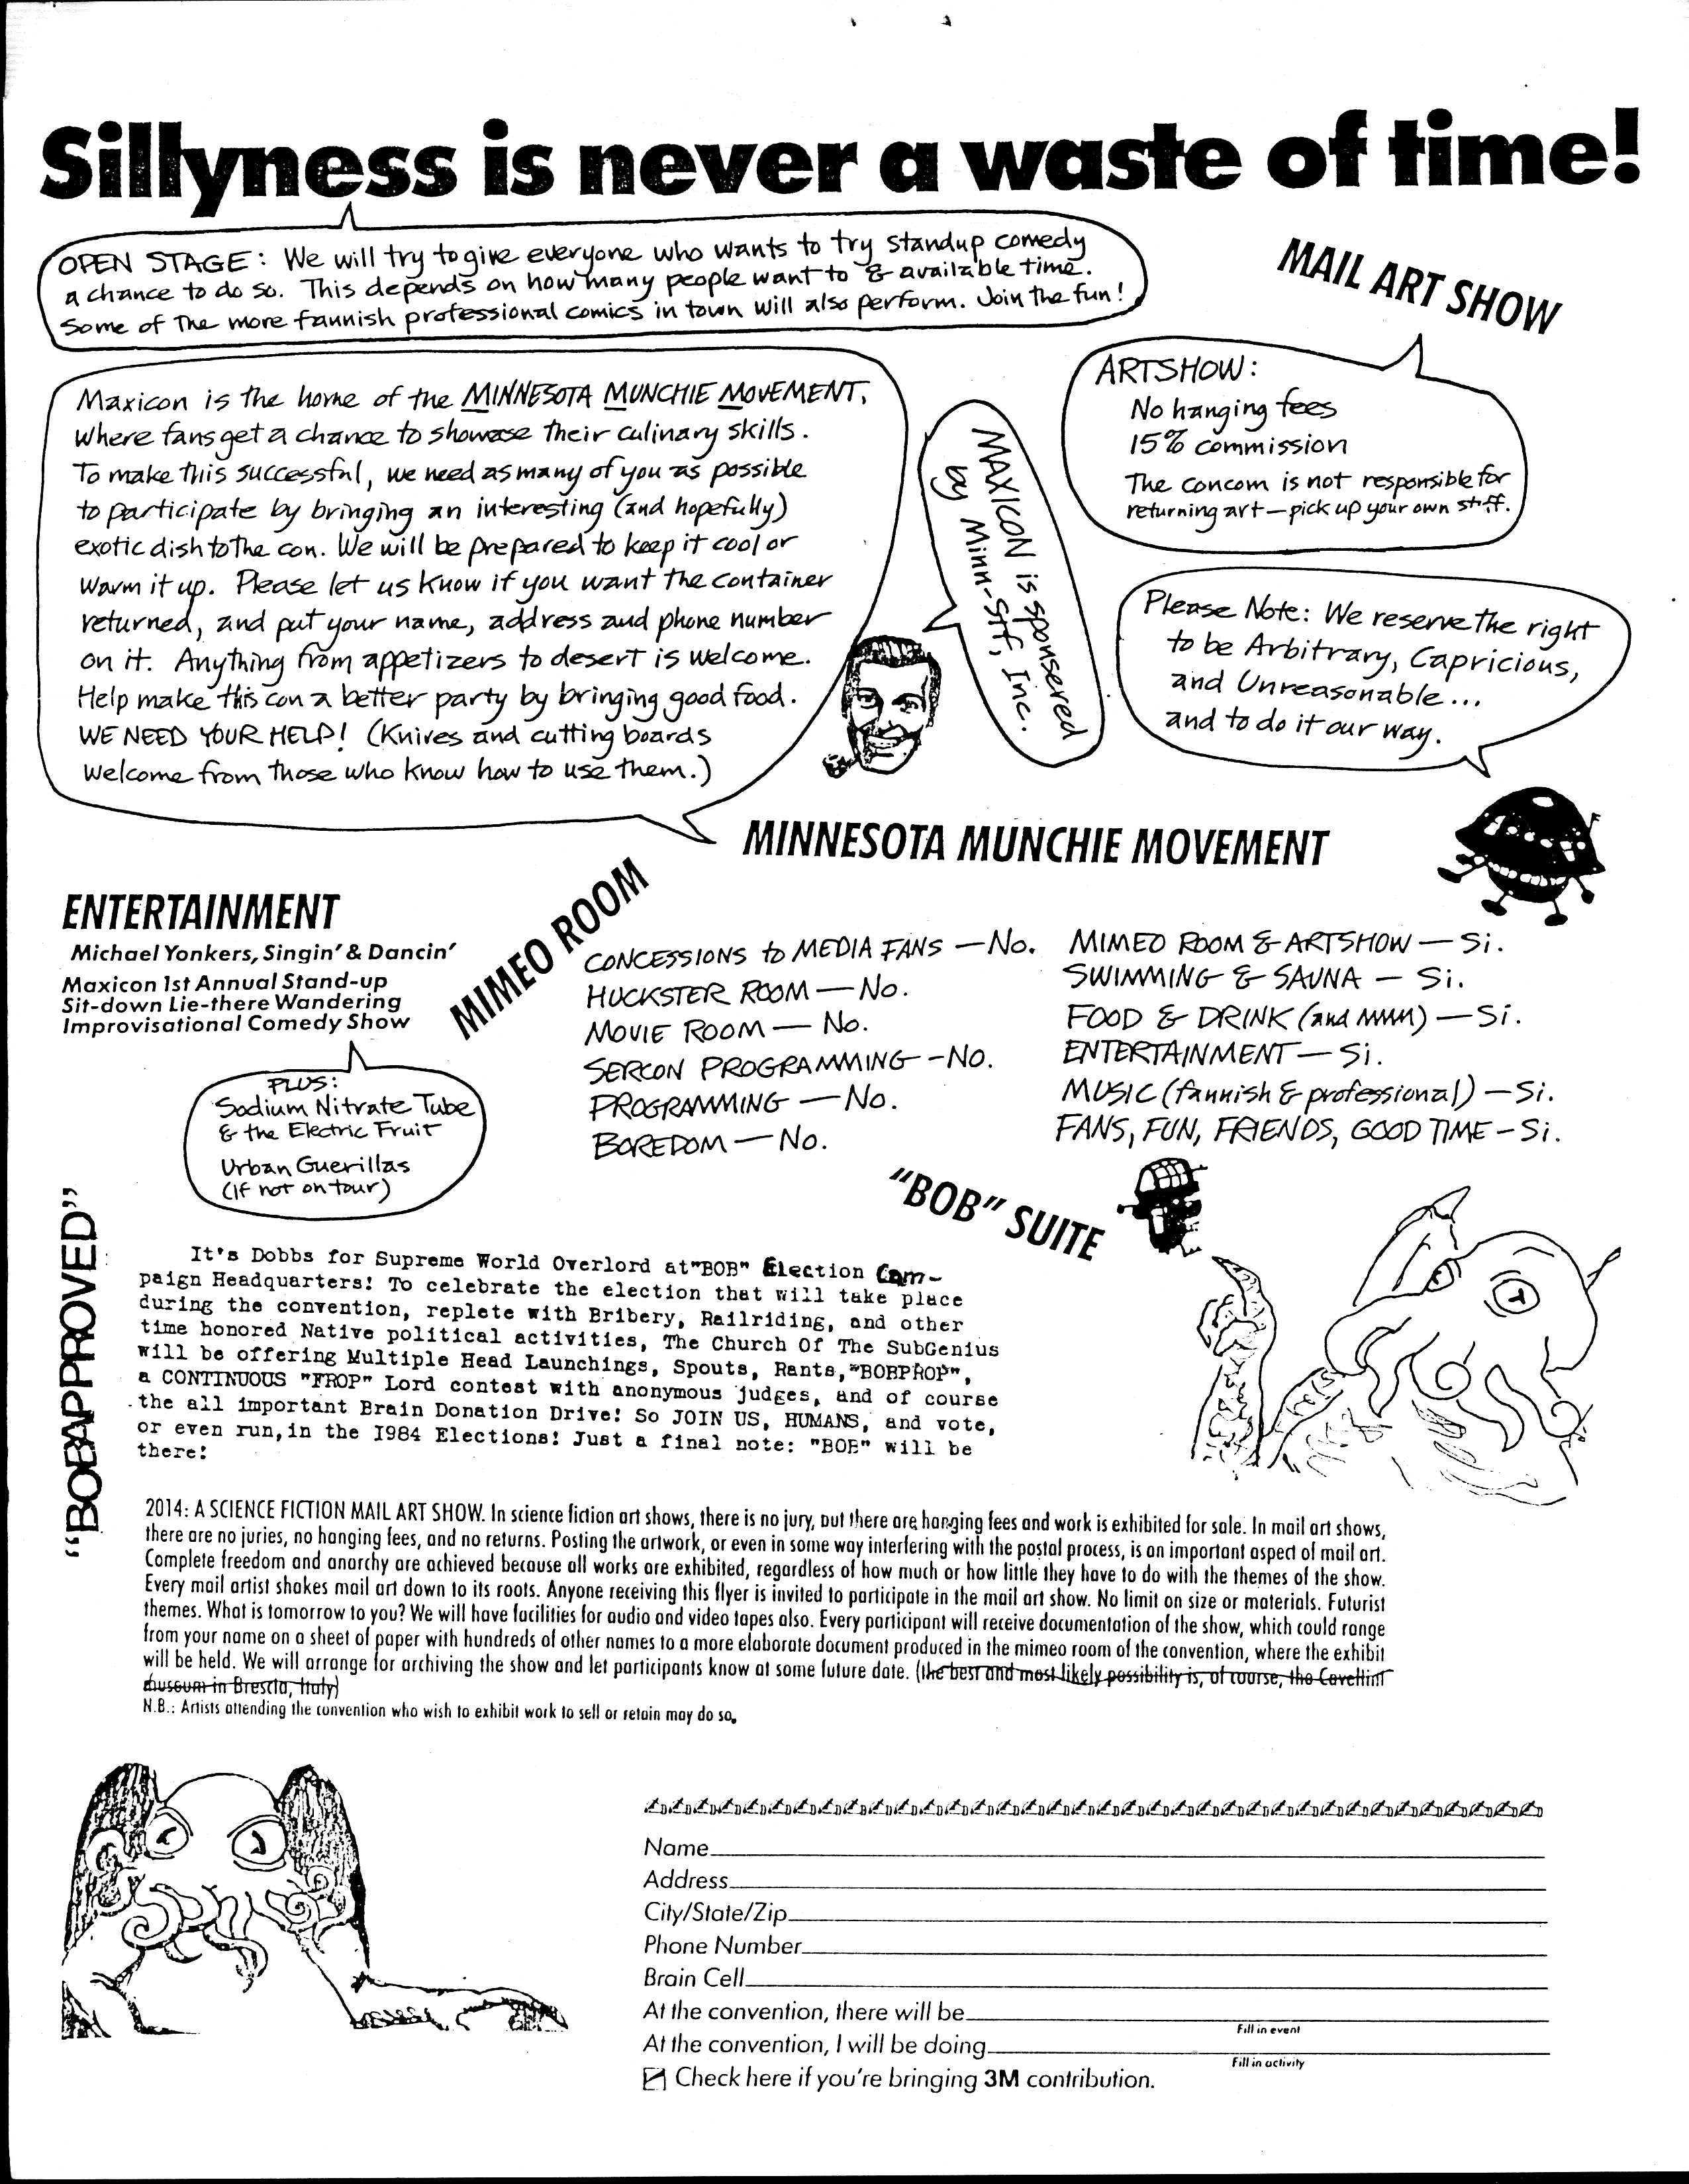 Sillyness is never a waste of time!
OPEN STAGE: We will try to give everyone who wants to try standup comedy
a chance to do so. This depends on how many people want to & available time.
Some of the more fannish professional comics in town will also perform. Join the fun!
MAIL ART SHOW
ARTSHOW:
No hanging fees
15% commission
The concom is not responsible for
returning art—pick up your own stuff.
Maxicon is the home of the MINNESOTA MUNCHIE MOVEMENT,
where fans get a chance to showcase their culinary skills.
To make this successful, we need as many of you as possible
to participate by bringing an interesting (and hopefully)
exotic dish to the con. We will be prepared to keep it cool or
warm it up. Please let us know if you want the container
returned, and put your name, address and phone number
on it. Anything from appetizers to desert is welcome.
Help make this con a better party by bringing good food.
WE NEED YOUR HELP! (Knives and cutting boards
welcome from those who know how to use them.)
MAXICON is sponsered
by Minn-Stf, Inc.
Please Note: We reserve the right
to be Arbitrary, Capricious,
and Unreasonable...
and to do it our way.
MINNESOTA MUNCHIE MOVEMENT
ENTERTAINMENT
Michael Yonkers, Singin' & Dancin'
Maxicon 1st Annual Stand-up
Sit-down Lie-there Wandering
Improvisational Comedy Show
PLUS:
Sodium Nitrate Tube
& the Electric Fruit
Urban Guerillas
(if not on tour)
MIMEO ROOM
CONCESSIONS to MEDIA FANS —No.
HUCKSTER ROOM — No.
MOVIE ROOM — No.
SERCON PROGRAMMING -NO.
PROGRAMMING — No.
BOREDOM — No.
MIMEO ROOM & ARTSHOW — Si.
SWIMMING & SAUNA — Si.
FOOD & DRINK (and MMM) — Si.
ENTERTAINMENT — Si.
MUSIC (fannish & professional) — Si.
FANS, FUN, FRIENDS, GOOD TIME - Si.
"BOB" SUITE
"BOBAPPROVED"
It's Dobbs for Supreme World Overlord at"BOB" Election Cam-
paign Headquarters! To celebrate the election that will take place
during the convention, replete with Bribery, Railriding, and other
time honored Native political activities, The Church Of The SubGenius
will be offering Multiple Head Launchings, Spouts, Rants,"BOBPROP",
a CONTINUOUS "FROP" Lord contest with anonymous judges, and of course
the all important Brain Donation Drive! So JOIN US, HUMANS, and vote,
or even run,in the I984 Elections! Just a final note: "BOB" will be
there!
2014: A SCIENCE FICTION MAIL ART SHOW. In science fiction art shows, there is no jury, but there are hanging fees and work is exhibited for sale. In mail art shows,
there are no juries, no hanging fees, and no returns. Posting the artwork, or even in some way interfering with the postal process, is an important aspect of mail art.
Complete freedom and anarchy are achieved because all works are exhibited, regardless of how much or how little they have to do with the themes of the show.
Every mail artist shakes mail art down to its roots. Anyone receiving this flyer is invited to participate in the mail art show. No limit on size or materials. Futurist
themes. What is tomorrow to you? We will have facilities for audio and video tapes also. Every participant will receive documentation of the show, which could range
from your name on a sheet of paper with hundreds of other names to a more elaborate document produced in the mimeo room of the convention, where the exhibit
will be held. We will arrange for archiving the show and let participants know at some future date. (the best and most likely possibility is, of course, the Cavellini
museum in Brescia, Italy)
N.B.: Artists attending the convention who wish to exhibit work to sell or retain may do so.
Name
Address
City/State/Zip
Phone Number
Brain Cell
At the convention, there will be
Fill in event
At the convention, I will be doing
Fill in activity
Check here if you're bringing 3M contribution.